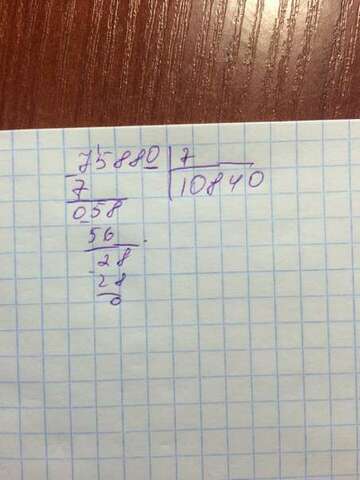 75880 7
7 10840
058
56
28
28
0